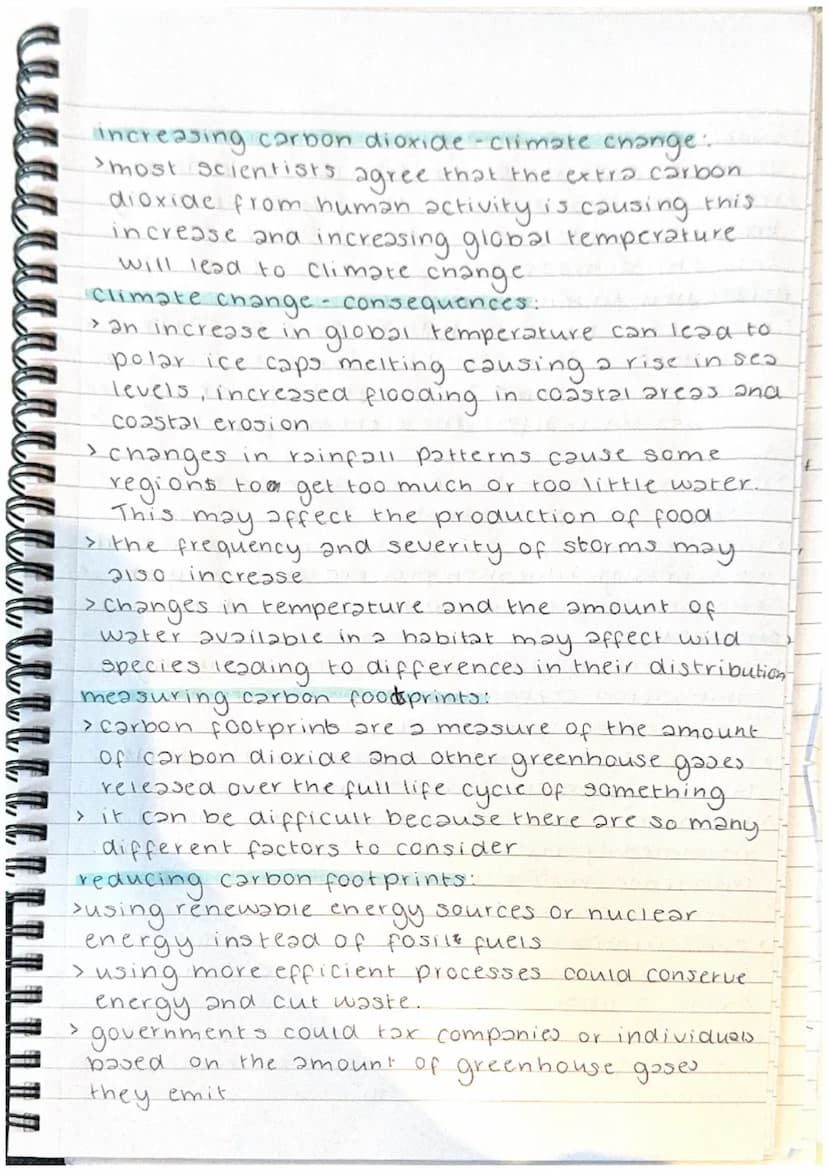 increasing carbon dioxide - climate change:
>most scientists agree that the extra carbon
dioxide from human activity is causing this
increase and increasing global temperature
will lead to climate change
climate change - consequences:
> an increase in global temperature can lead to
polar ice caps melting causing a rise in sea
levels, increased flooding in coastal areas and
coastal erosion
> changes in rainfall patterns cause some
regions to get too much or too little water.
This may affect the production of food
> the frequency and severity of storms may
also increase
> changes in temperature and the amount of
water available in a habitat may affect wild
species leading to differences in their distribution
measuring carbon footprints:
> carbon footprints are a measure of the amount
of carbon dioxide and other greenhouse gases
released over the full life cycle of something
> it can be difficult because there are so many
different factors to consider
reducing carbon footprints:
>using renewable energy sources or nuclear
energy instead of fosil fuels
> using more efficient processes could conserve
energy and cut waste.
> governments could tax companies or individuals
based on the amount of greenhouse gases
they emit